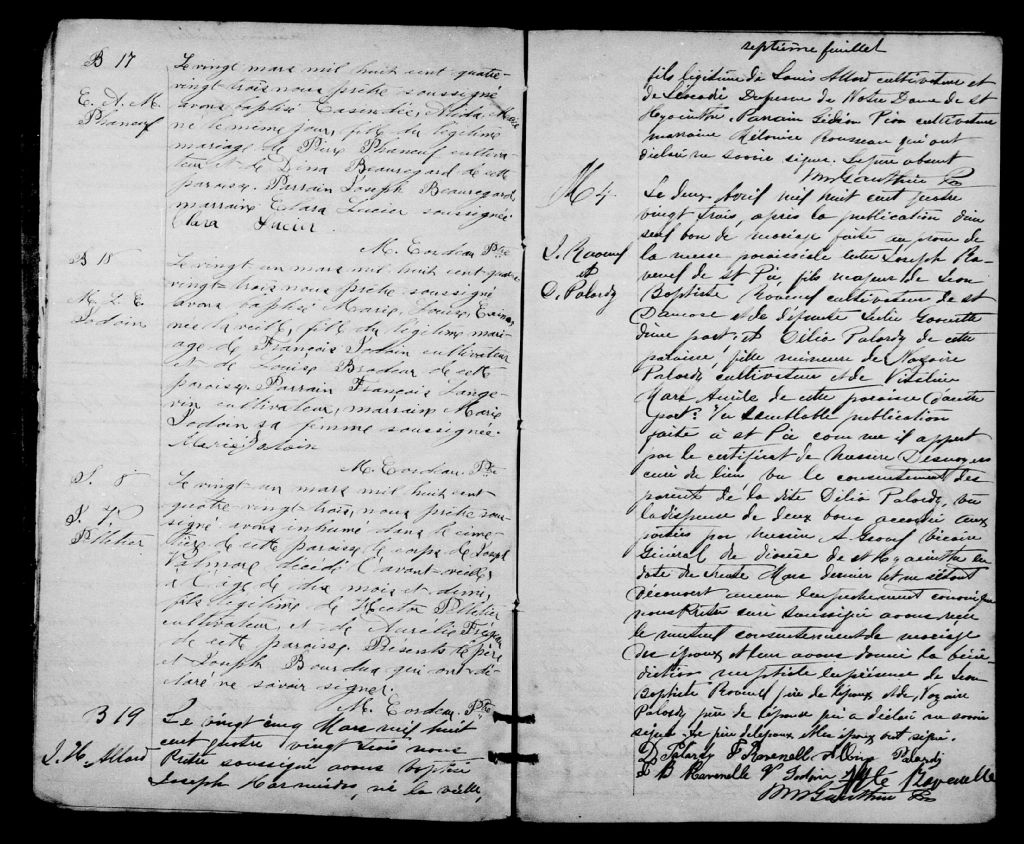 B 17
E. A. M.
Phaneuf
Le vingt mars mil huit cent quatre-
vingt trois nous prêtre soussigné
avons baptisé Alida, Marie
né le même jour, fille du légitime
mariage de Pierre Phaneuf cultiva-
teur et de Dina Beauregard de cette
paroisse. Parrain Joseph Beauregard
marraine Clara Lucier soussignée
Clara Lucier
M. Cordeau Ptre
B 18
M. L. E.
Jodoin
Le vingt un mars mil huit cent quatre
vingt trois nous prêtre soussigné
avons baptisé Marie, Louise,
née la veille, fille du légitime mari-
age de François Jodoin cultivateur
et de Louise Brodeur de cette
paroisse. Parrain François Lange-
vin cultivateur, marraine Marie
Jodoin sa femme soussignée.
Marie Jodoin
M. Cordeau Ptre
S. 8
J. V.
Pelletier
Le vingt un mars mil huit cent
quatre vingt trois, nous prêtre sous-
signé avons inhumé dans le cime-
tière de cette paroisse le corps de Joseph
Valmore décédé l'avant-veille,
à l'âge de dix mois et demi,
fils légitime de Hector Pelletier
cultivateur, et de Aurélie
de cette paroisse. Présents le père
et Joseph Bourdua qui ont dé-
claré ne savoir signer.
M. Cordeau. Ptre
B 19
J. H. Allard
Le vingt cinq Mars mil huit
cent quatre vingt trois nous
Prêtre soussigné avons baptisé
Joseph Harmidas, né la veille,
septième feuillet
fils légitime de Louis Allard cultivateur et
de Léocadie Dufresne de Notre Dame de St
Hyacinthe, Parrain Gédéon Pion cultivateur
marraine Mélonise Rousseau qui ont
déclaré ne savoir signer. Le père absent
Gauthier Ptre
M 4
J. Ravenel
et
O. Palardy
Le deux Avril mil huit cent quatre
vingt trois, après la publication d'un
seul ban de mariage faite au prône de
la messe paroissiale entre Joseph Ra-
venel de St Pie, fils majeur de Jean
Baptiste Ravenel cultivateur de St
Damase et de défunte
d'une part; et Délia Palardy de cette
paroisse, fille mineure de Nazaire
Palardy cultivateur et de
de cette paroisse d'autre
part: Vu semblable publication
faite à St Pie comme il appert
par le certificat de Messire Desnoyers
curé du lieu, vu le consentement des
parents de la dite Délia Palardy, vu
la dispense de deux bans accordée aux
parties par Messire A Gravel Vicaire
Général du diocèse de St Hyacinthe en
date du trente Mars dernier et ne s'étant
découvert aucun empêchement
nous Prêtre curé soussigné avons reçu
le mutuel consentement de mariage
des époux et leur avons donné la béné-
diction nuptiale en présence de Jean
Baptiste Ravenel père de l'époux et de Nazaire
Palardy père de l'épouse qui a déclaré ne savoir
signer. Le père de l'époux et les époux ont signé.
D Palardy F Ravenelle Palardy
J B Ravenelle V Jodoin Ravenelle
Gauthier Ptre